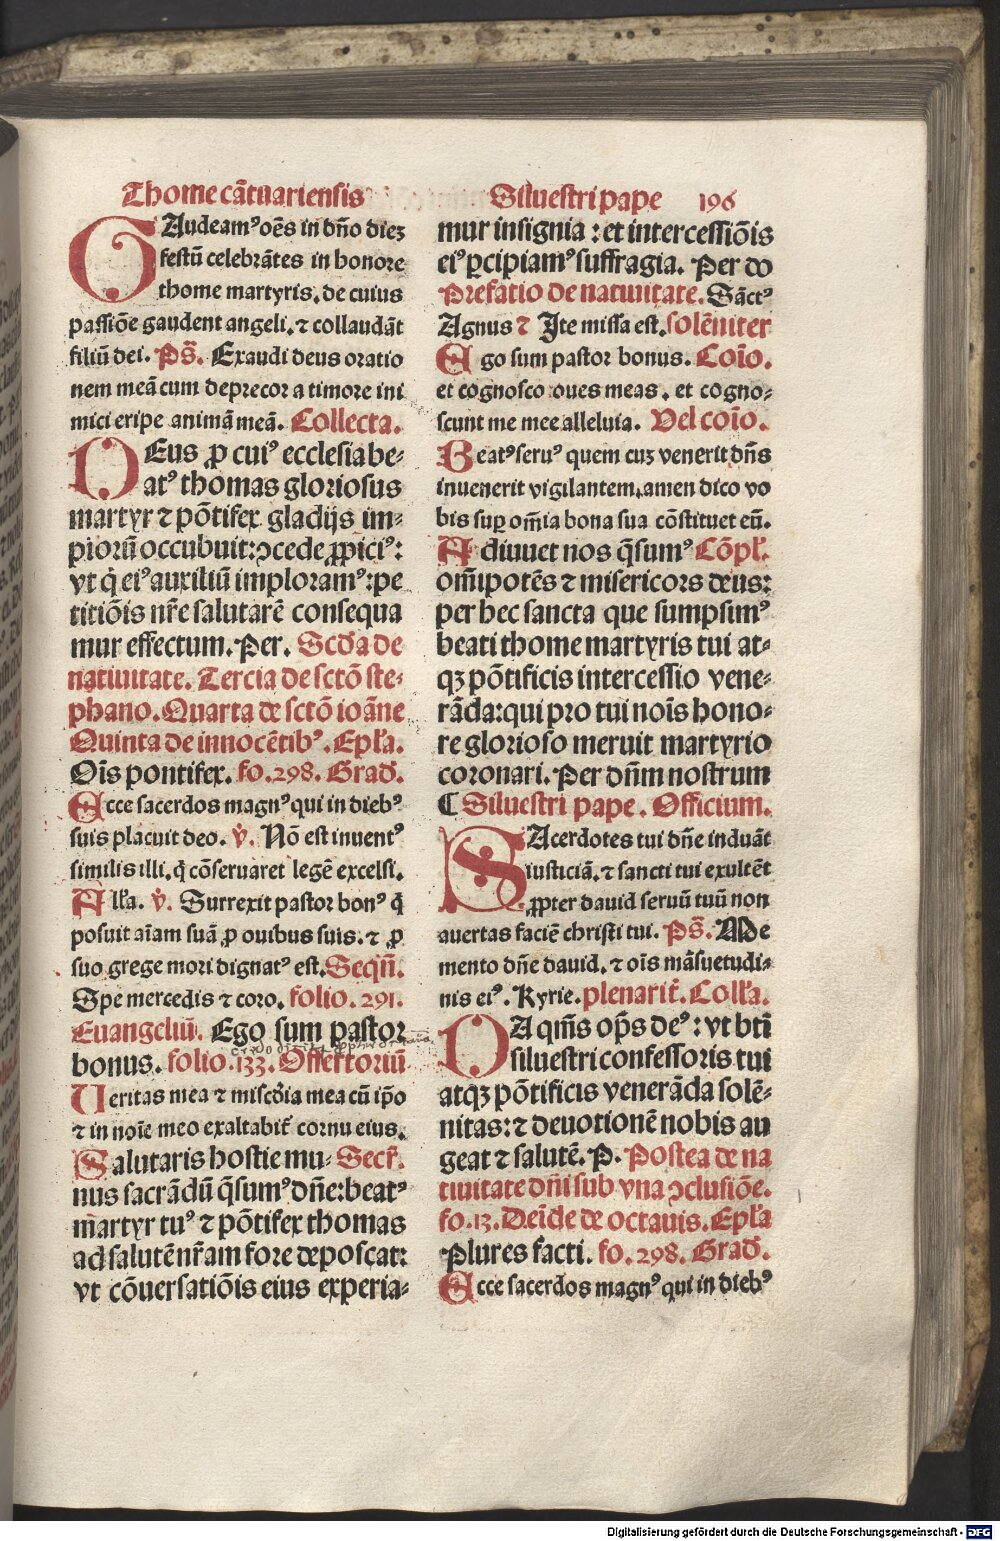 Thome cātuariensis
Siluestri pape 196
GAudeamꝰ oēs in dn̄o dieʒ
festū celebrātes in honore
thome martyris. de cuius
passiōe gaudent angeli. ⁊ collaudāt
filiū dei. Pṡ. Exaudi deus oratio
nem meā cum deprecor a timore ini
mici eripe animā meā. Collecta.
DEus ꝓ cuiꝰ ecclesia be⸗
atꝰ thomas gloriosus
martyr ⁊ pōtifex gladijs im⸗
piorū occubuit: ꝯcede ꝓpiciꝰ:
vt q̇ eiꝰ auxiliū imploramꝰ: pe
titiōis nr̄e salutarē consequa
mur effectum. Per. Scḋa de
natiuitate. Tercia de sctō ste⸗
phano. Quarta de sctō ioāne
Quinta de innocētibꝰ. Ep̄la.
Oīs pontifex. fo. 298. Grad̄.
Ecce sacerdos magnꝰ qui in diebꝰ
suis placuit deo. v̇. Nō est inuentꝰ
similis illi. q̇ cōseruaret legē excelsi.
All̄a. v̇. Surrexit pastor bonꝰ q̇
posuit aīam suā ꝓ ouibus suis. ⁊ ꝓ
suo grege mori dignatꝰ est. Sequn̄.
Spe mercedis ⁊ coro. folio. 291.
Euangeliū. Ego sum pastor
bonus. folio. 133. Offertoriū
Ueritas mea ⁊ misc̄dia mea cū ip̄o
⁊ in noīe meo exaltabit̄ cornu eius.
Salutaris hostie mu⸗ Secr̄.
nus sacrādū q̄sumꝰ dn̄e: beatꝰ
martyr tuꝰ ⁊ pōtifex thomas
ad salutē nr̄am fore deposcat:
vt cōuersatiōis eius experia⸗
mur insignia: et intercessiōis
eiꝰ ꝑcipiamꝰ suffragia. Per do
Prefatio de natiuitate. Sāctꝰ
Agnus ⁊ Ite missa est. solēniter
Ego sum pastor bonus. Coīo.
et cognosco oues meas. et cogno⸗
scunt me mee alleluia. Vel coīo.
Beatꝰ seruꝰ quem cuʒ venerit dn̄s
inuenerit vigilantem. amen dico vo
bis suꝑ om̄ia bona sua cōstituet eū.
Adiuuet nos q̄sumꝰ Cōpl̄.
om̄ipotēs ⁊ misericors deus:
per hec sancta que sumpsimꝰ
beati thome martyris tui at⸗
qʒ pōtificis intercessio vene⸗
rāda: qui pro tui noīs hono⸗
re glorioso meruit martyrio
coronari. Per dn̄m nostrum
¶ Siluestri pape. Officium.
SAcerdotes tui dn̄e induāt
iusticiā. ⁊ sancti tui exultēt
ꝓpter dauid seruū tuū non
auertas faciē christi tui. Pṡ. Me
mento dn̄e dauid. ⁊ oīs māsuetudi⸗
nis eiꝰ. Kyrie. plenarit̄. Coll̄a.
DA qm̄s op̄s deꝰ: vt bt̄i
siluestri confessoris tui
atqʒ pōtificis venerāda solē⸗
nitas: ⁊ deuotionē nobis au
geat ⁊ salutē. P. Postea de na
tiuitate dn̄i sub vna ꝯclusiōe.
fo. 13. Deīde de octauis. Ep̄la
Plures facti. fo. 298. Grad̄.
Ecce sacerdos magnꝰ qui in diebꝰ
Digitalisierung gefördert durch die Deutsche Forschungsgemeinschaft - DFG